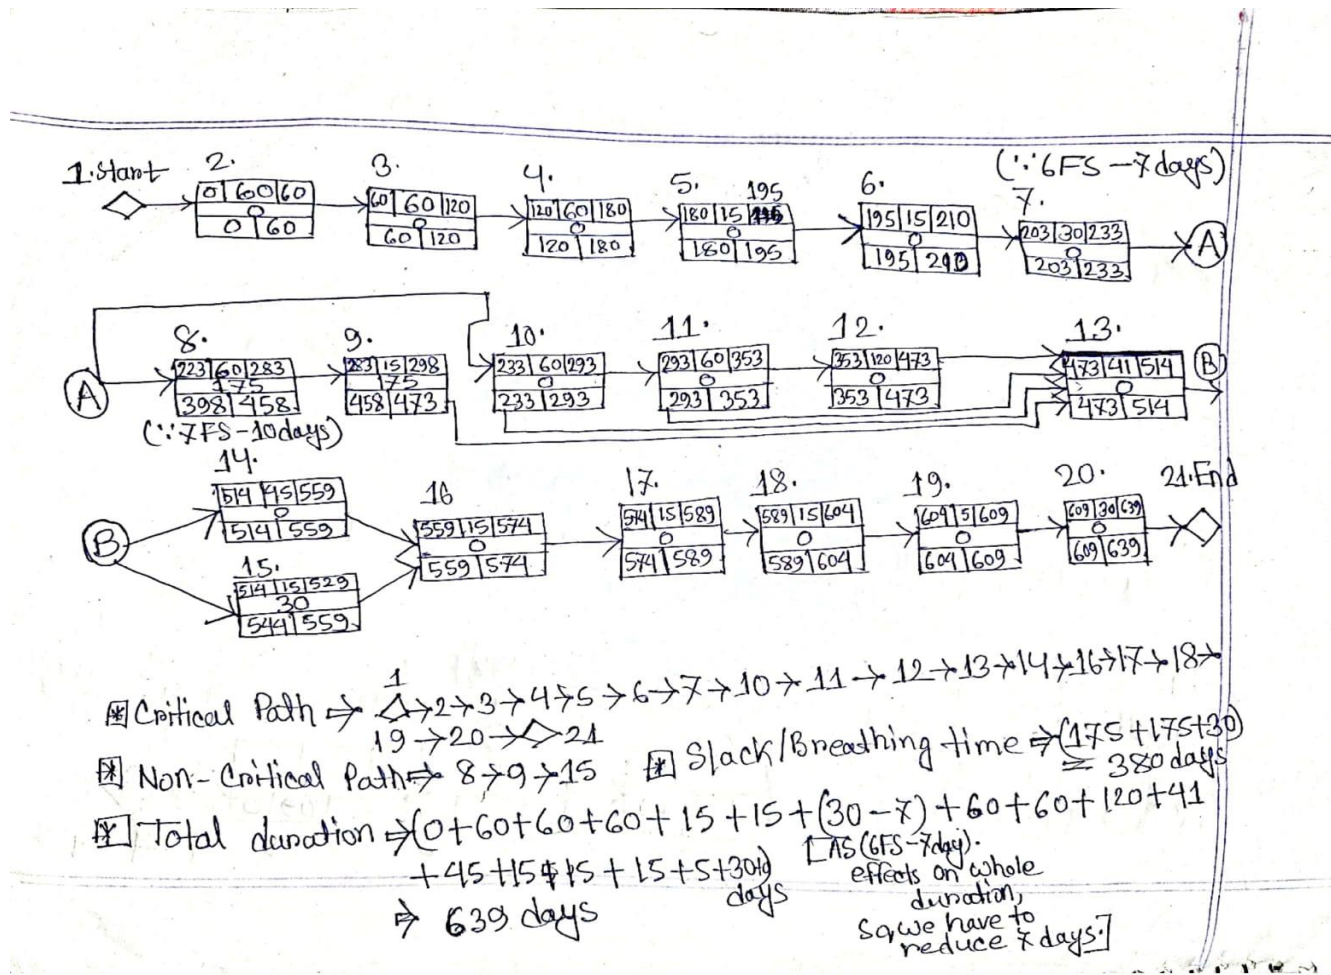 1. Start
2.
0 | 60 | 60
0
0 | 60
3.
60 | 60 | 120
0
60 | 120
4.
120 | 60 | 180
0
120 | 180
5.
195
180 | 15
0
180 | 195
6.
195 | 15 | 210
0
195 | 210
(∵6FS-7days)
7.
203 | 30 | 233
0
203 | 233
A
A
8.
223 | 60 | 283
175
398 | 458
(∵7FS-10days)
9.
283 | 15 | 298
175
458 | 473
10.
233 | 60 | 293
0
233 | 293
11.
293 | 60 | 353
0
293 | 353
12.
353 | 120 | 473
0
353 | 473
13.
473 | 41 | 514
0
473 | 514
B
B
14.
514 | 45 | 559
0
514 | 559
15.
514 | 15 | 529
30
544 | 559
16
559 | 15 | 574
0
559 | 574
17.
574 | 15 | 589
0
574 | 589
18.
589 | 15 | 604
0
589 | 604
19.
604 | 5 | 609
0
604 | 609
20.
609 | 30 | 639
0
609 | 639
21. End
1
* Critical Path ⇒ ◇→2→3→4→5→6→7→10→11→12→13→14→16→17→18→
19→20→◇21
* Slack/Breathing time ⇒ (175+175+30)
= 380 days
* Non-Critical Path ⇒ 8→9→15
* Total duration ⇒ (0+60+60+60+15+15+(30-7)+60+60+120+41
+45+15+15+15+5+30+0)
days
[AS (6FS-7day).
effects on whole
duration,
so, we have to
reduce 7 days.]
⇒ 639 days